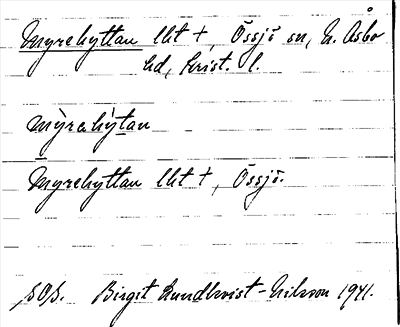 Myrehyttan lht +, Össjö sn, N. Åsbo
hd, Krist. l.
mỳrehỳtan
Myrehyttan lht +, Össjö.
SOS. Birgit Lundkvist-Nilsson 1941.